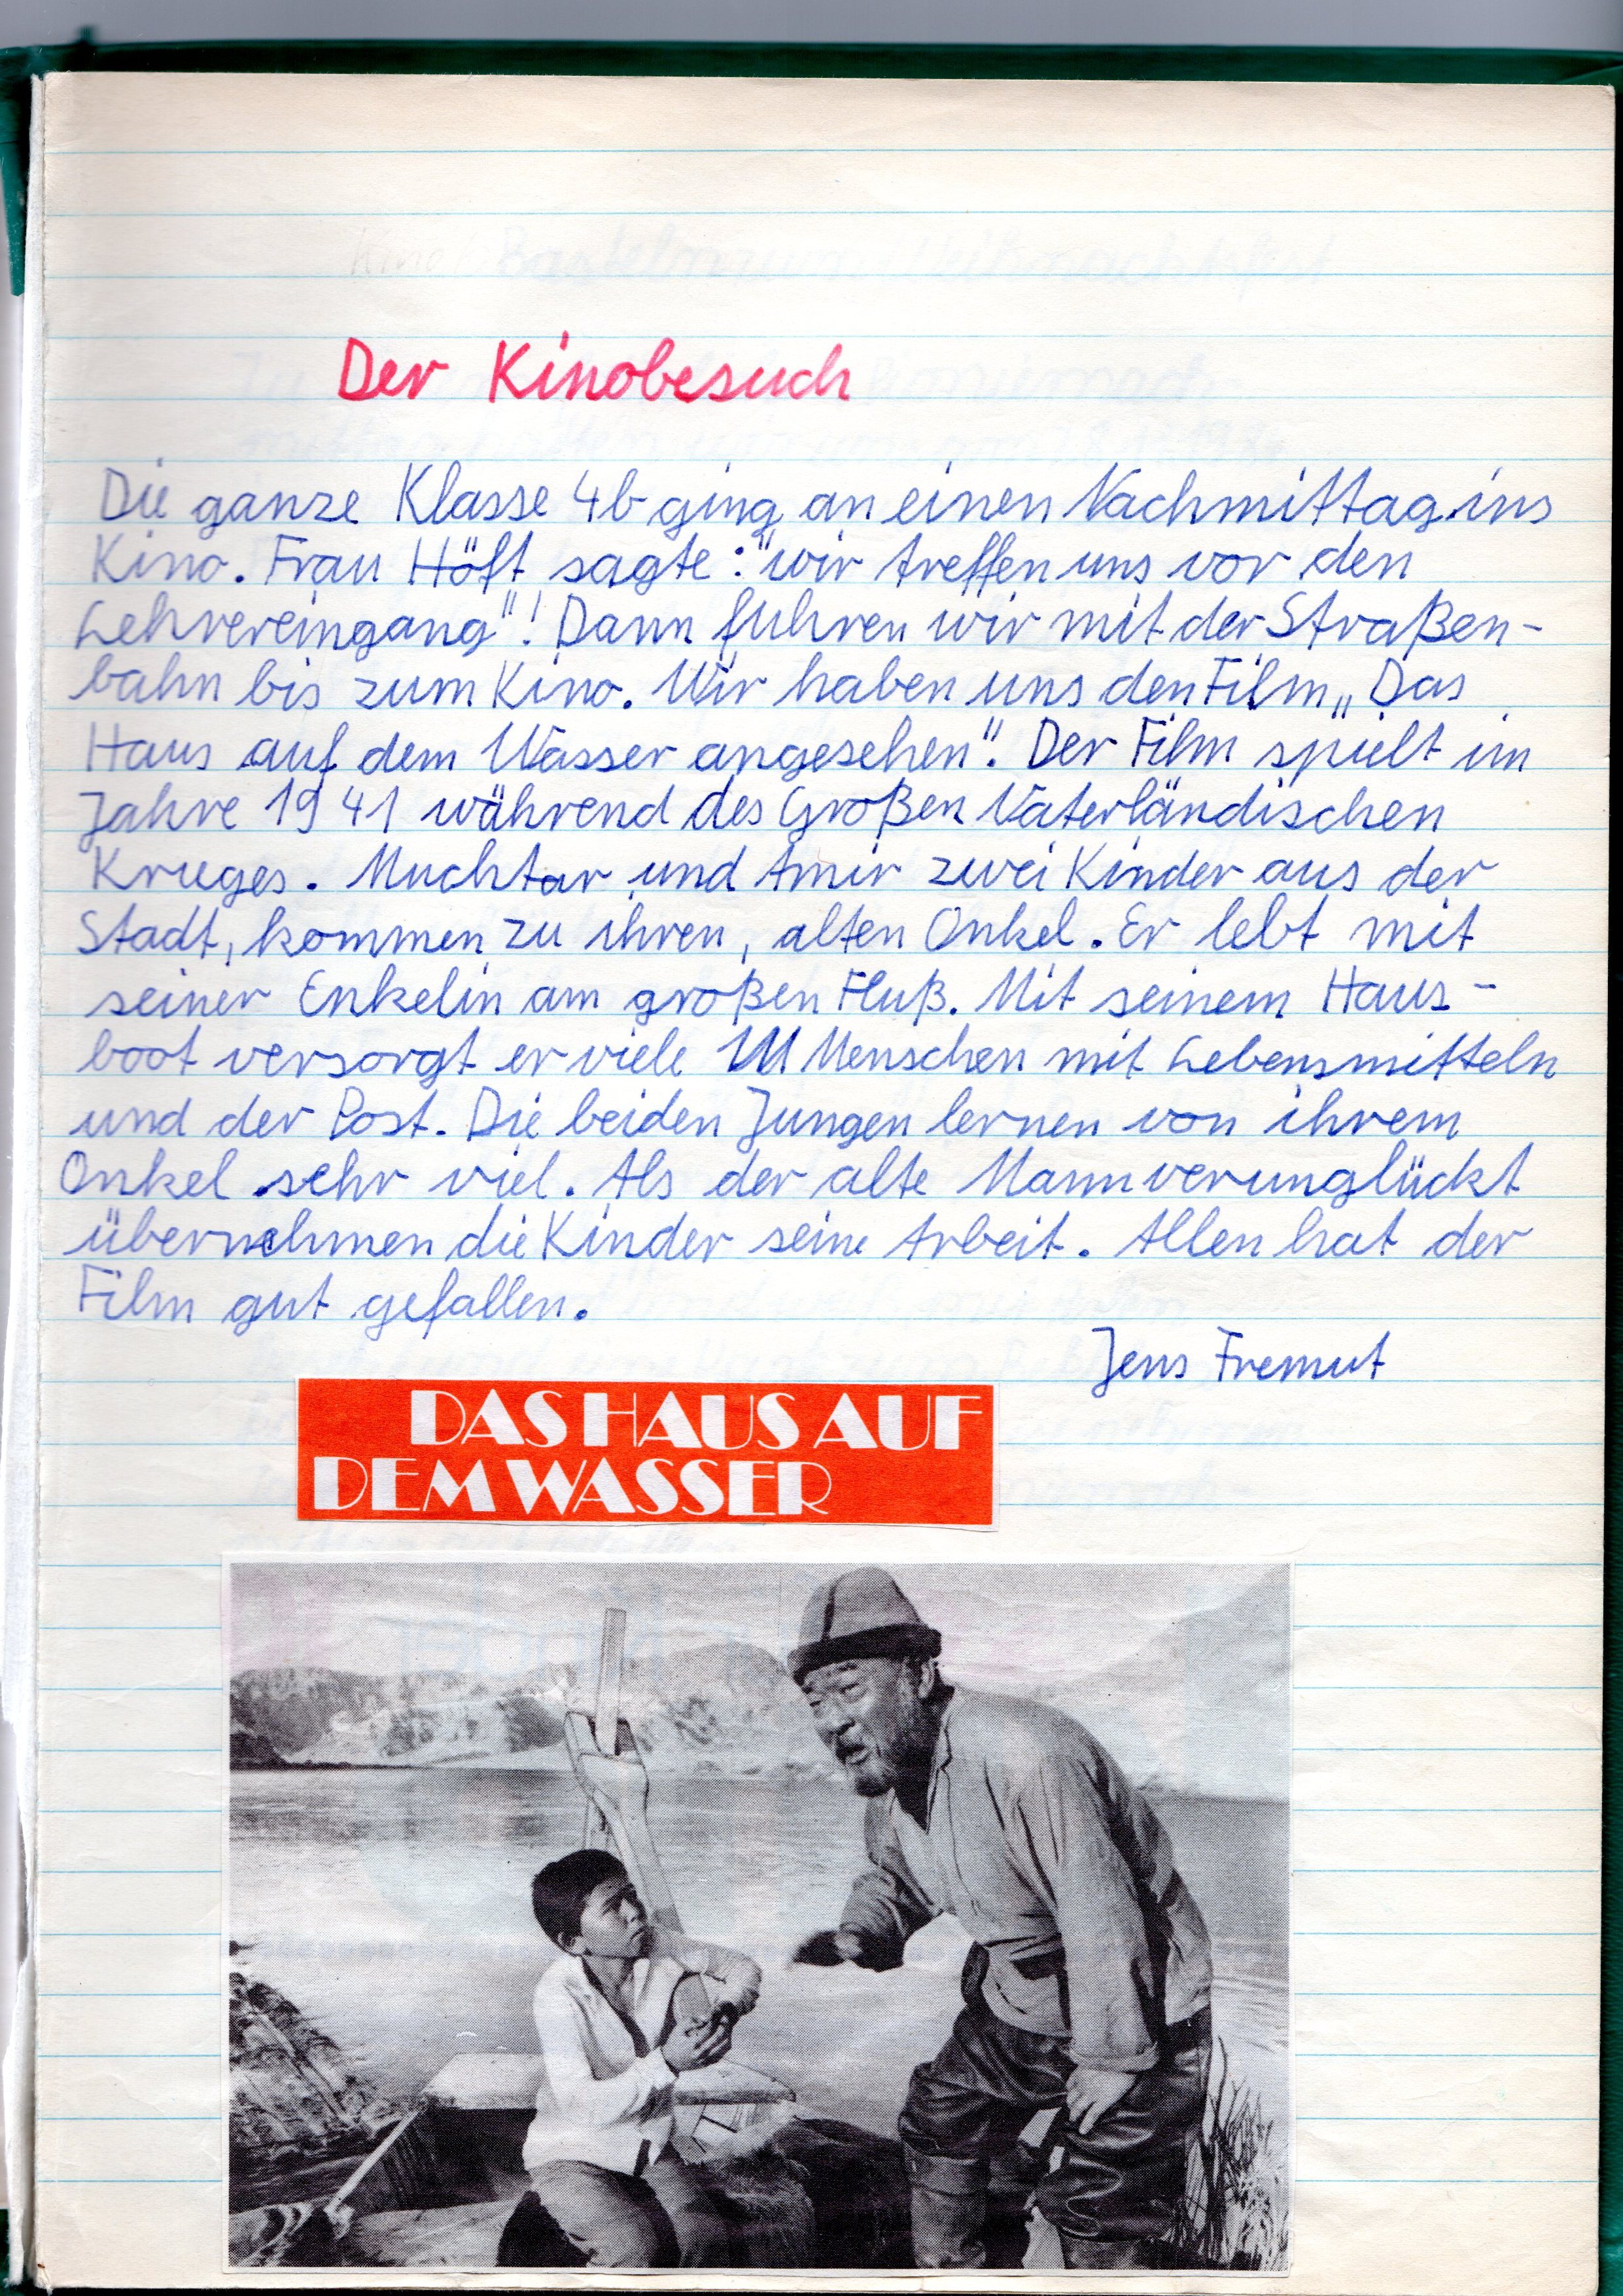 Der Kinobesuch
Die ganze Klasse 4b ging an einen Nachmittag ins
Kino. Frau Höft sagte: "wir treffen uns vor den
Lehrereingang"! Dann fuhren wir mit der Straßen-
bahn bis zum Kino. Wir haben uns den Film „Das
Haus auf dem Wasser angesehen". Der Film spielt im
Jahre 1941 während des Großen Vaterländischen
Krieges. Muchtar und Amir zwei Kinder aus der
Stadt, kommen zu ihren, alten Onkel. Er lebt mit
seiner Enkelin am großen Fluß. Mit seinem Haus-
boot versorgt er viele Menschen mit Lebensmitteln
und der Post. Die beiden Jungen lernen von ihrem
Onkel sehr viel. Als der alte Mann verunglückt
übernehmen die Kinder seine Arbeit. Allen hat der
Film gut gefallen.
Jens Fremut
DAS HAUS AUF
DEM WASSER